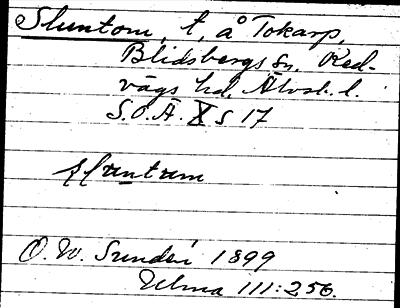 Sluntorn, t, å Tokarp,
Blidsbergs sn, Red-
vägs hd, Älvsb. l.
S.O.Ä. X s 17
O. W. Sundén 1899
Ulma 111:256.